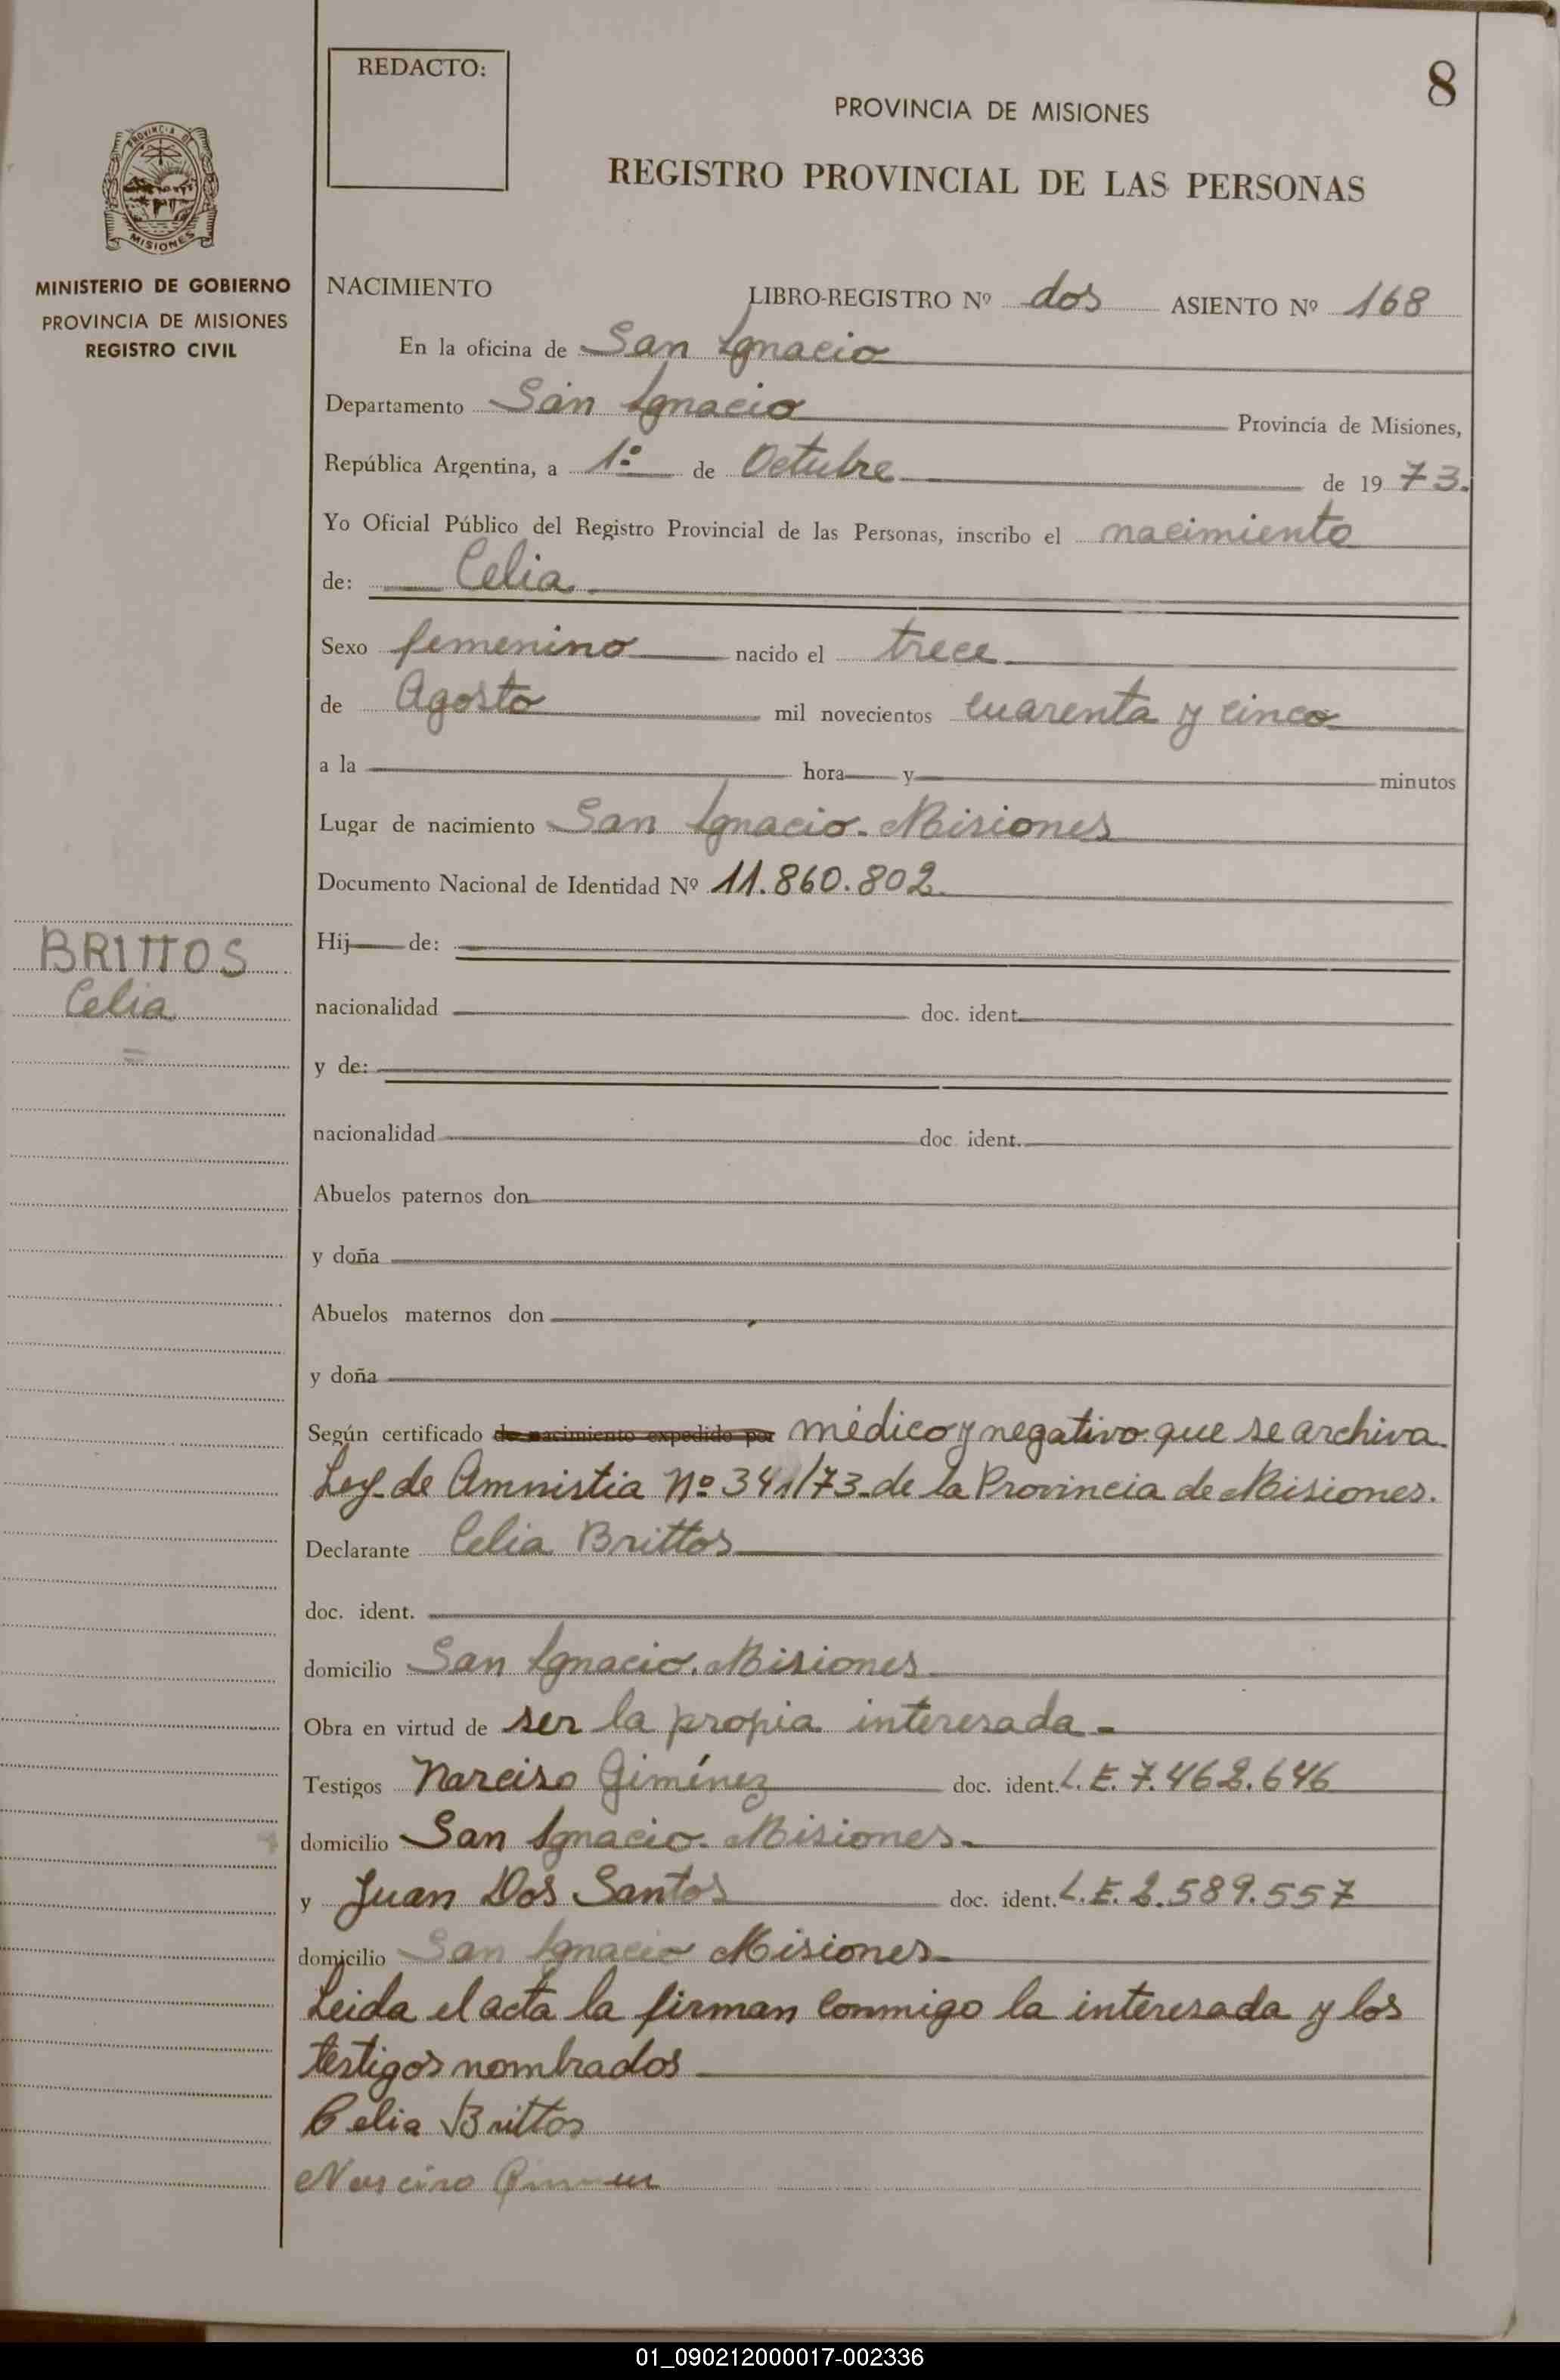 REDACTO:
8
PROVINCIA DE MISIONES
REGISTRO PROVINCIAL DE LAS PERSONAS
PROVINCIA DE
MISIONES
MINISTERIO DE GOBIERNO
PROVINCIA DE MISIONES
REGISTRO CIVIL
NACIMIENTO LIBRO-REGISTRO Nº dos ASIENTO Nº 168
En la oficina de San Ignacio
Departamento San Ignacio Provincia de Misiones,
República Argentina, a 1º de Octubre de 1973.
Yo Oficial Público del Registro Provincial de las Personas, inscribo el nacimiento
de: Celia
Sexo femenino nacido el trece
de Agosto mil novecientos cuarenta y cinco
a la hora y minutos
Lugar de nacimiento San Ignacio. Misiones
Documento Nacional de Identidad Nº 11.860.802
BRITTOS
Celia
Hij de:
nacionalidad doc. ident.
y de:
nacionalidad doc. ident.
Abuelos paternos don
y doña
Abuelos maternos don
y doña
Según certificado de nacimiento expedido por médico y negativo que se archiva.
Ley de Amnistia Nº 341/73 de la Provincia de Misiones.
Declarante Celia Brittos
doc. ident.
domicilio San Ignacio. Misiones
Obra en virtud de ser la propia interesada -
Testigos Narciso Giménez doc. ident. L.E. 7.462.646
domicilio San Ignacio. Misiones
y Juan Dos Santos doc. ident. L.E. 2.589.557
domicilio San Ignacio Misiones
Leida el acta la firman conmigo la interesada y los
testigos nombrados
Celia Brittos
Narciso
01_090212000017-002336